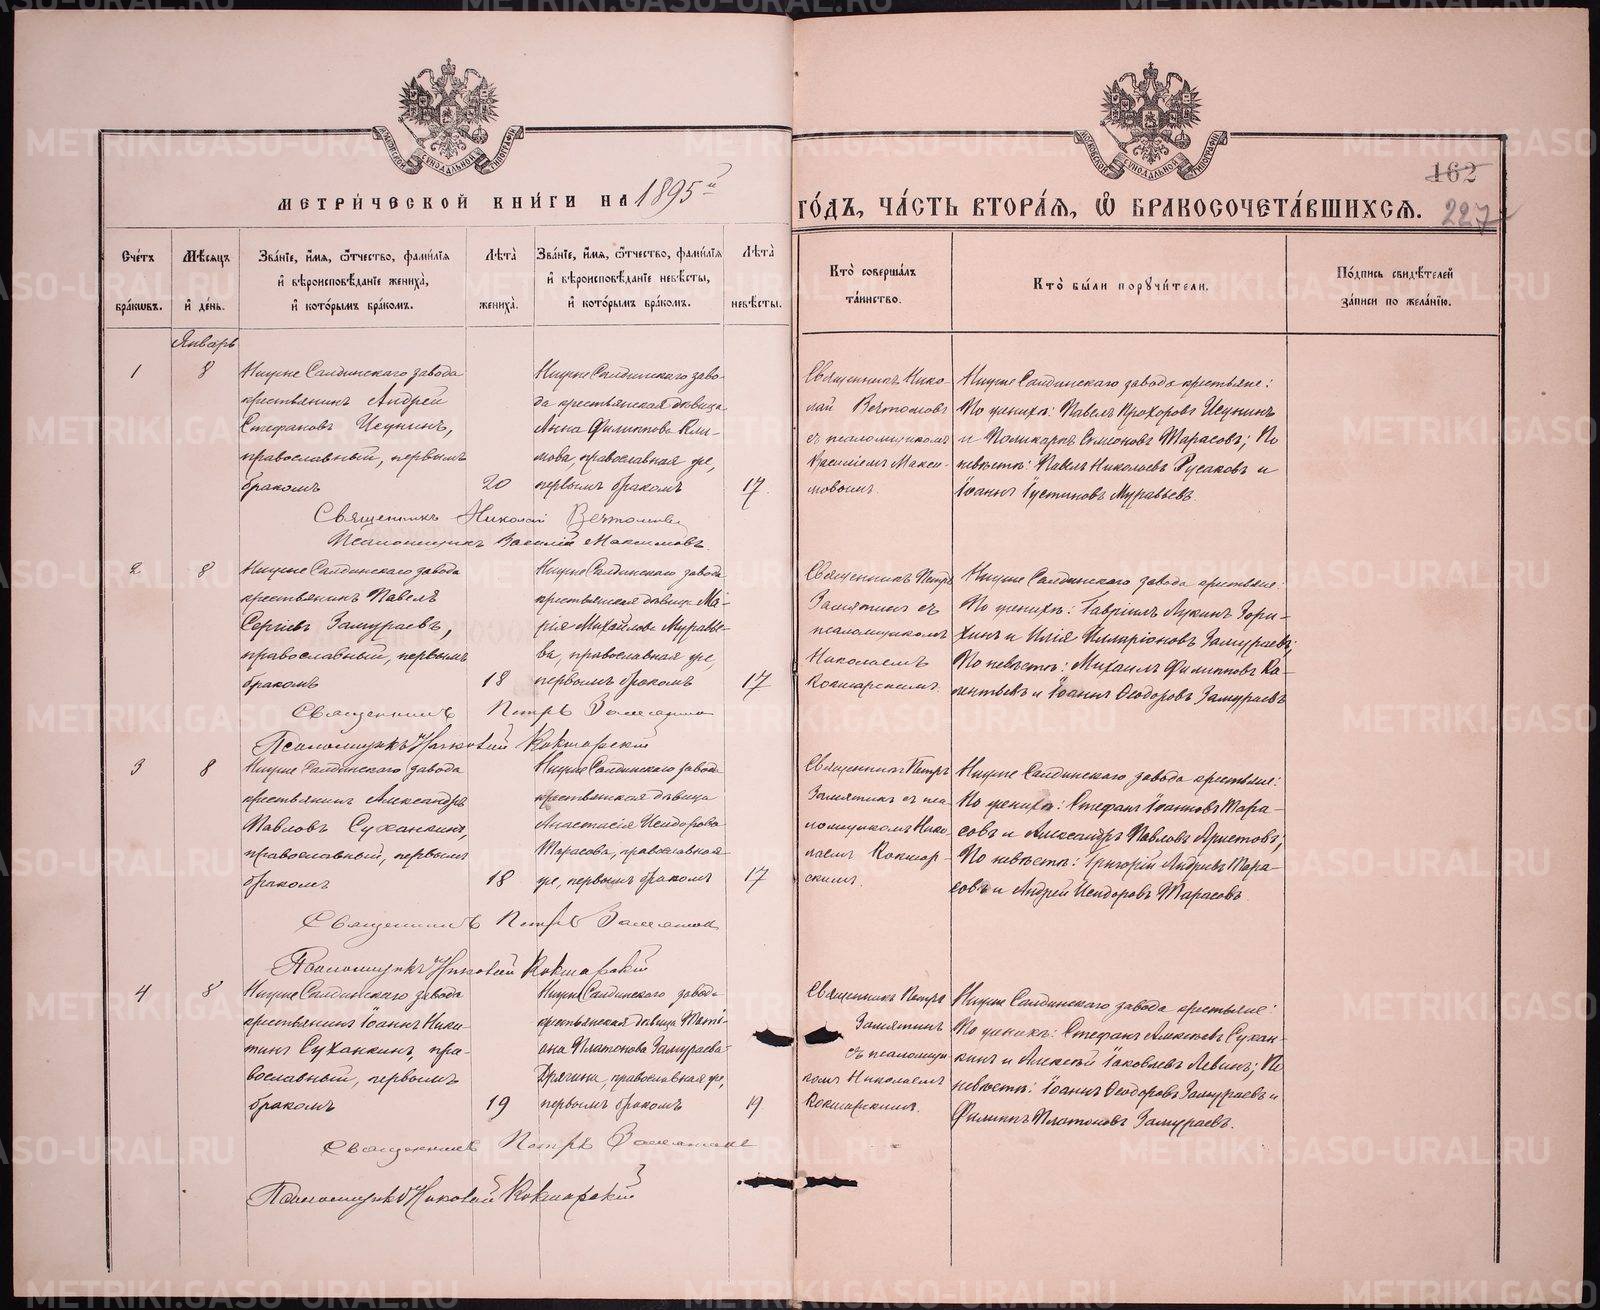 МЕТРИЧЕСКОЙ КНИГИ НА 1895й
ГОДЪ, ЧАСТЬ ВТОРАЯ, Ѡ БРАКОСОЧЕТАВШИХСЯ.
162
227
Счетъ браковъ.
Мѣсяцъ и день.
Званіе, имя, ѿчество, фамилія
и вѣроисповѣданіе жениха,
и которымъ бракомъ.
Лѣта
жениха.
Званіе, имя, ѿчество, фамилія
и вѣроисповѣданіе невѣсты,
и которымъ бракомъ.
Лѣта
невѣсты.
Кто совершалъ
таинство.
Кто были поручители.
Подпись свидѣтелей
записи по желанію.
Январь
1
8
Нижне Салдинскаго завода
крестьянинъ Андрей
Стефановъ Исунинъ,
православный, первымъ
бракомъ
20
Нижне Салдинскаго заво-
да крестьянская дѣвица
Анна Филиппова Кли-
мова, православная же,
первымъ бракомъ
17.
Священникъ Нико-
лай Вечтомовъ
съ псаломщикомъ
Василіемъ Макси-
мовымъ.
Нижне Салдинскаго завода крестьяне:
По женихѣ: Павелъ Прохоровъ Исунинъ
и Поликарпъ Симеоновъ Тарасовъ; По
невѣстѣ: Павелъ Николаевъ Русаковъ и
Іоаннъ Іустиновъ Муравьевъ
Священникъ Николай Вечтомовъ
Псаломщикъ Василій Максимовъ.
2
8
Нижне Салдинскаго завода
крестьянинъ Павелъ
Сергіевъ Замураевъ,
православный, первымъ
бракомъ
18
Нижне Салдинскаго завода
крестьянская дѣвица Ма-
рія Михайлова Муравье-
ва, православная же,
первымъ бракомъ
17
Священникъ Петръ
Замятинъ съ
псаломщикомъ
Николаемъ
Кокшарскимъ.
Нижне Салдинскаго завода крестьяне:
По женихѣ: Гавріилъ Лукинъ Зори-
хинъ и Илія Илларіоновъ Замураевъ;
По невѣстѣ: Михаилъ Филипповъ
и Іоаннъ Ѳеодоровъ Замураевъ
Священникъ Петръ Замятинъ
Псаломщикъ Николай Кокшарскій
3
8
Нижне Салдинскаго завода
крестьянинъ Александръ
Павловъ Суханкинъ,
православный, первымъ
бракомъ
18
Нижне Салдинскаго завода
крестьянская дѣвица
Анастасія Исидорова
Тарасова, православная
же, первымъ бракомъ
17
Священникъ Петръ
Замятинъ съ пса-
ломщикомъ Нико-
лаемъ Кокшар-
скимъ.
Нижне Салдинскаго завода крестьяне:
По женихѣ: Стефанъ Іоанновъ Тара-
совъ и Александръ Павловъ Аристовъ;
По невѣстѣ: Григорій Андреевъ Тара-
совъ и Андрей Исидоровъ Тарасовъ
Священникъ Петръ Замятинъ
Псаломщикъ Николай Кокшарскій
4
8
Нижне Салдинскаго завода
крестьянинъ Іоаннъ Ники-
тинъ Суханкинъ, пра-
вославный, первымъ
бракомъ
19
Нижне Салдинскаго завода
крестьянская дѣвица Тати-
ана Платонова Замураева-
Дрягина, православная же,
первымъ бракомъ
19
Священникъ Петръ
Замятинъ
съ псаломщи-
комъ Николаемъ
Кокшарскимъ.
Нижне Салдинскаго завода крестьяне:
По женихѣ: Стефанъ Алексѣевъ Сухан-
кинъ и Алексѣй Іаковлевъ Левинъ; По
невѣстѣ: Іоаннъ Ѳеодоровъ Замураевъ и
Филиппъ Платоновъ Замураевъ.
Священникъ Петръ Замятинъ
Псаломщикъ Николай Кокшарскій
METRIKI.GASO-URAL.RU